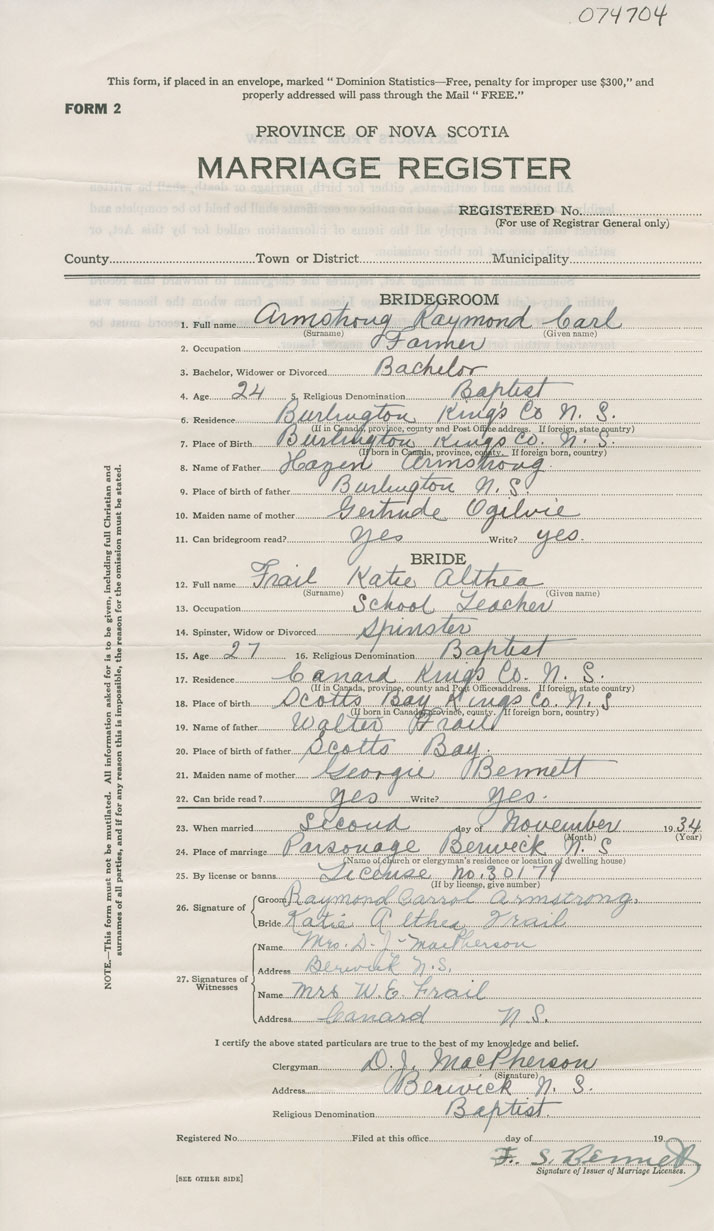 074704
This form, if placed in an envelope, marked “ Dominion Statistics—Free, penalty for improper use $300,” and
properly addressed will pass through the Mail “ FREE.”
FORM 2
PROVINCE OF NOVA SCOTIA
MARRIAGE REGISTER
REGISTERED No.
(For use of Registrar General only)
County Town or District Municipality
BRIDEGROOM
1. Full name Armstrong Raymond Carl
(Surname) (Given name)
2. Occupation Farmer
3. Bachelor, Widower or Divorced Bachelor
4. Age 24 5. Religious Denomination Baptist
6. Residence Burlington King's Co N. S.
(If in Canada, province, county and Post Office address. If foreign, state country)
7. Place of Birth Burlington Kings Co. N. S.
(If born in Canada, province, county. If foreign born, country)
8. Name of Father Hazen Armstrong
9. Place of birth of father Burlington N. S
10. Maiden name of mother Gertrude Ogilvie
11. Can bridegroom read? Yes Write? yes.
BRIDE
12. Full name Frail Katie Althea
(Surname) (Given name)
13. Occupation School Teacher
14. Spinster, Widow or Divorced Spinster
15. Age 27 16. Religious Denomination Baptist
17. Residence Canard King's Co. N. S.
(If in Canada, province, county and Post Office address. If foreign, state country)
18. Place of birth Scotts Bay Kings Co. N. S
(If born in Canada, province, county. If foreign born, country)
19. Name of father Walter Frail
20. Place of birth of father Scotts Bay.
21. Maiden name of mother Georgie Bennett
22. Can bride read? Yes Write? Yes.
23. When married Second day of November 1934
(Month) (Year)
24. Place of marriage Parsonage Berwick N. S
(Name of church or clergyman's residence or location of dwelling house)
25. By license or banns License no. 30179
(If by license, give number)
26. Signature of Groom Raymond Carrol Armstrong.
Bride Katie Althea Frail
27. Signatures of Witnesses
Name Mrs. D. J. MacPherson
Address Berwick N.S.
Name Mrs W. E. Frail
Address Canard N.S.
I certify the above stated particulars are true to the best of my knowledge and belief.
Clergyman D. J. MacPherson
(Signature)
Address Berwick N. S.
Religious Denomination Baptist.
Registered No. Filed at this office day of 19
F. S. Bennett
Signature of Issuer of Marriage Licenses.
[SEE OTHER SIDE]
NOTE.—This form must not be mutilated. All information asked for is to be given, including full Christian and
surnames of all parties, and if for any reason this is impossible, the reason for the omission must be stated.